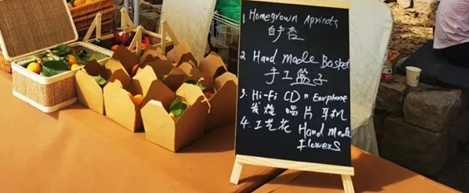 1. Homegrown Apricots
白杏
2. Hand Made Basket
手工篮子
3. Hi-Fi CD. Earphone
发烧 唱片 耳机
4. 工艺花 Hand Made
Flowers